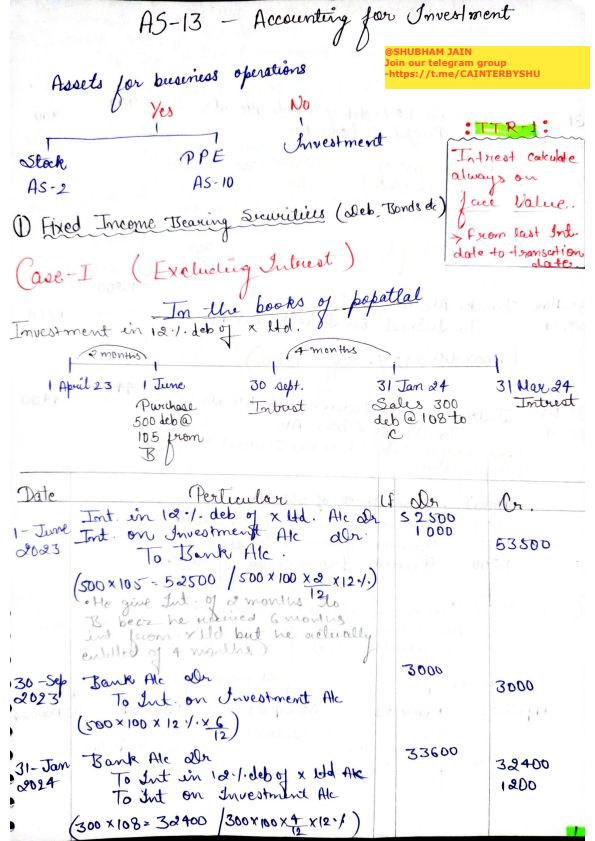 AS-13 - Accounting for Investment
@SHUBHAM JAIN
Join our telegram group
-https://t.me/CAINTERBYSHU
Assets for business operations
Yes
No
Stock
AS-2
PPE
AS-10
Investment
: TTR-1 :
Intrest calculate
always on
face Value.
→ From last Int.
date to transction
date
① Fixed Income Bearing Securities (Deb. Bonds etc)
CASE-I ( Excluding Interest )
In the books of popatlal
Investment in 12% deb of x ltd.
2 months
4 months
1 April 23
1 June
30 sept.
31 Jan 24
31 Mar 24
Purchase
500 deb @
105 from
B
Intrest
Sales 300
deb @ 108 to
C
Intrest
Date Perticular Lf Dr Cr.
1-June
2023
Int. in 12% deb of x ltd. A/c Dr 52500
Int. on Investment A/c Dr. 1000
To Bank A/c. 53500
(500×105 = 52500 / 500×100×2/12×12%)
• He give Int. of 2 months to
B becz he recived 6 months
int from x ltd but he actually
entitled of 4 months)
30-Sep
2023
Bank A/c Dr 3000
To Int. on Investment A/c 3000
(500×100×12%×6/12)
31-Jan
2024
Bank A/c Dr 33600
To Int in 12% deb of x ltd A/c 32400
To Int on Investment A/c 1200
(300×108 = 32400 / 300×100×4/12×12%)
1